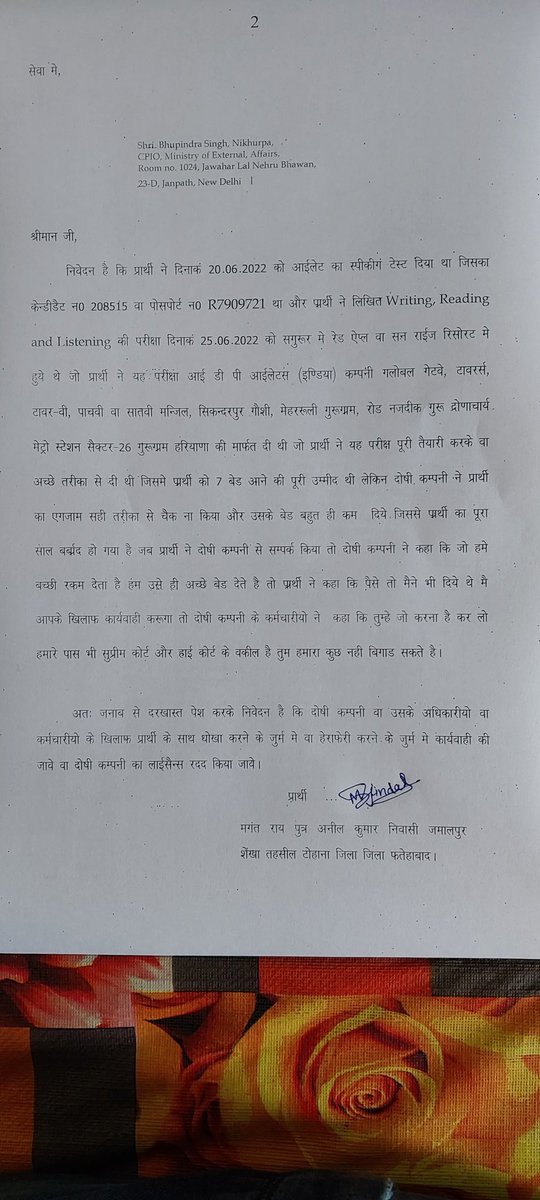 2
सेवा मे,
Shri. Bhupindra Singh, Nikhurpa,
CPIO, Ministry of External, Affairs,
Room no. 1024, Jawahar Lal Nehru Bhawan,
23-D, Janpath, New Delhi
श्रीमान जी,
निवेदन है कि प्रार्थी ने दिनाकं 20.06.2022 को आईलेट का स्पीकीगं टेस्ट दिया था जिसका
केन्डीडैट न0 208515 वा पोसपोर्ट न0 R7909721 था और प्रार्थी ने लिखित Writing, Reading
and Listening की परीक्षा दिनाकं 25.06.2022 को सगुरूर मे रेड ऐप्ल वा सन राईज रिसोरट मे
हुये थे जो प्रार्थी ने यह परीक्षा आई डी पी आईलेटस (इण्डिया) कम्पनी गलोबल गेटवे, टावरर्स,
टावर-वी, पाचवी वा सातवी मन्जिल, सिकन्दरपुर गौशी, मेहररूली गुरूग्रम, रोड नजदीक गुरू द्रोणाचार्य
मेट्रो स्टेशन सैक्टर-26 गुरूग्राम हरियाणा की मार्फत दी थी जो प्रार्थी ने यह परीक्ष पूरी तैयारी करके वा
अच्छे तरीका से दी थी जिसमे प्रार्थी को 7 बेड आने की पूरी उम्मीद थी लेकिन दोषी कम्पनी ने प्रार्थी
का एगजाम सही तरीका से चैक ना किया और उसके बेड बहुत ही कम दिये जिससे प्रार्थी का पूरा
साल बर्बाद हो गया है जब प्रार्थी ने दोषी कम्पनी से सम्पर्क किया तो दोषी कम्पनी ने कहा कि जो हमे
बच्छी रकम देता है हंम उसे ही अच्छे बेड देते है तो प्रार्थी ने कहा कि पैसे तो मैने भी दिये थे मै
आपके खिलाफ कार्यवाही करूगा तो दोषी कम्पनी के कर्मचारीयो ने कहा कि तुम्हे जो करना है कर लो
हमारे पास भी सुप्रीम कोर्ट और हाई कोर्ट के वकील है तुम हमारा कुछ नही बिगाड सकते है।
अतः जनाब से दरखास्त पेश करके निवेदन है कि दोषी कम्पनी वा उसके अधिकारीयो वा
कर्मचारीयो के खिलाफ प्रार्थी के साथ धोखा करने के जुर्म मे वा हेराफेरी करने के जुर्म मे कार्यवाही की
जावे वा दोषी कम्पनी का लाईसैन्स रदद किया जावे।
प्रार्थी ...
मगंत राय पुत्र अनील कुमार निवासी जमालपुर
शेंखा तहसील टोहाना जिला जिला फतेहाबाद।